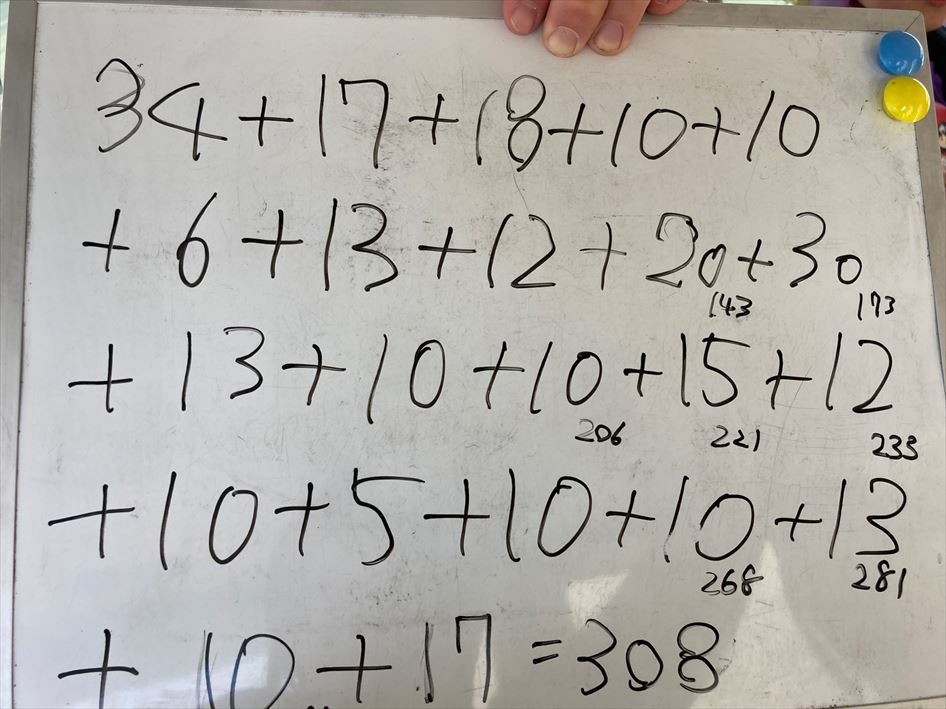 34+17+18+10+10
+6+13+12+20+30
143 173
+13+10+10+15+12
206 221 233
+10+5+10+10+13
268 281
+10+17=308